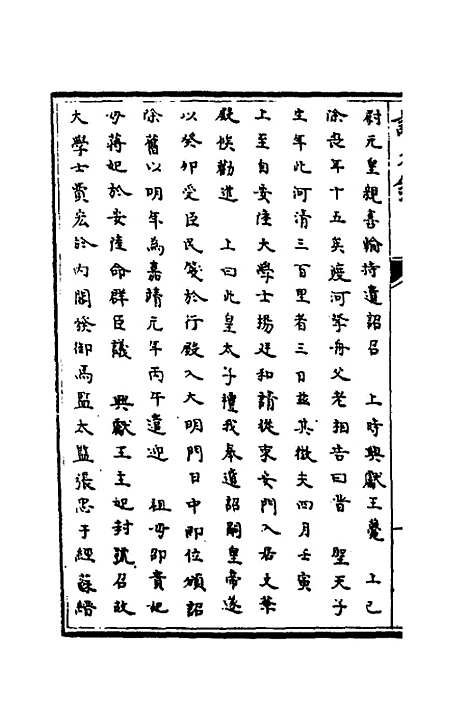 尉元皇親喜輪持遺詔召　上時興獻王薨　上已
除喪年十五矣渡河拏舟父老相告曰昔　聖天子
生年此河清三百里者三日茲其徵夫四月壬寅
上至自安陸大學士楊廷和請從東安門入居文華
殿俟勸進　上曰此皇太子禮我奉遺詔嗣皇帝遂
以癸卯受臣民箋於行殿入大明門日中即位頒詔
除舊以明年為嘉靖元年丙午遣迎　祖母邵貴妃
母蔣妃於安陸命群臣議　興獻王主妃封號召故
大學士費宏於內閣御馬監太監張忠于經蘇縉